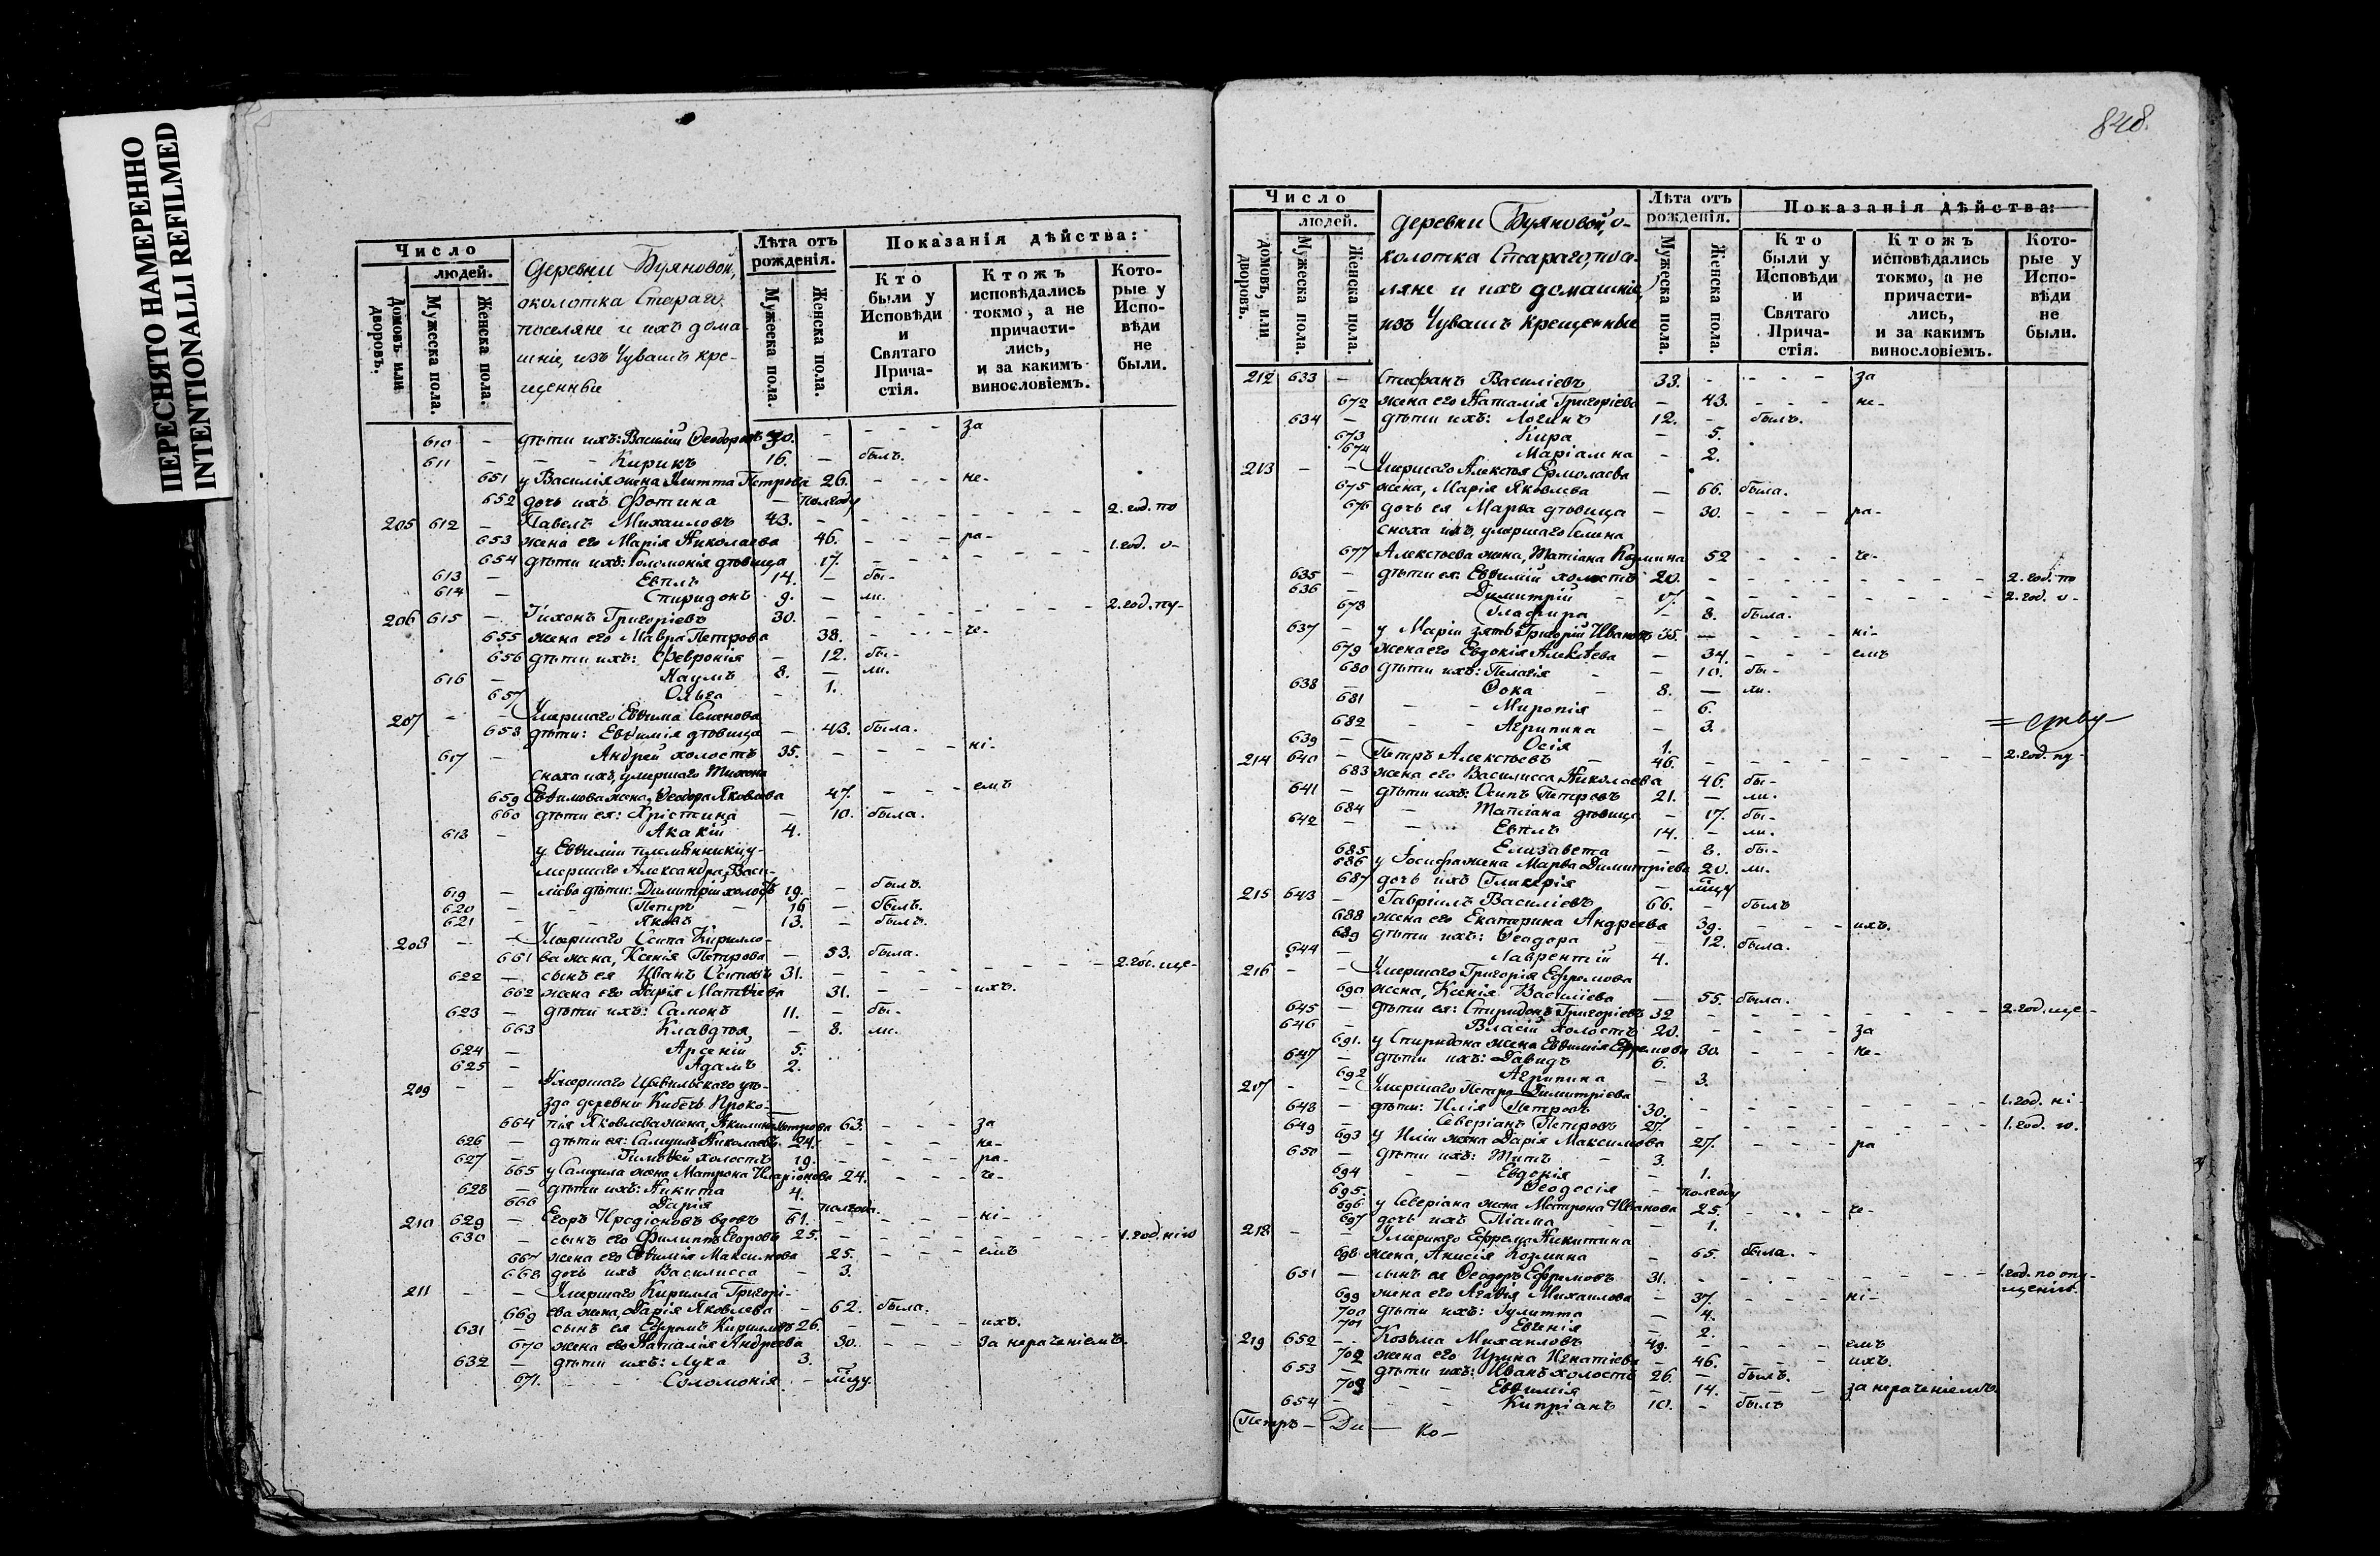 ПЕРЕСНЯТО НАМЕРЕННО
INTENTIONALLI REFILMED
Число
людей.
Домовъ или дворовъ.
Мужеска пола.
Женска пола.
деревни Буяновой,
околотка Стараго,
поселяне и ихъ дома-
шніе, изъ Чувашъ кре-
щенные
Лѣта отъ рожденія.
Мужеска пола.
Женска пола.
Показанія дѣйства:
Кто были у Исповѣди и Святаго Прича-стія.
Ктожъ исповѣдались токмо, а не причасти-лись, и за какимъ винословіемъ.
Кото-рые у Испо-вѣди не были.
610 - дѣти ихъ: Василій Ѳеодоровъ 30. - - - - за
611 - - - Кирикъ 16. - былъ.
651 у Василія жена Улитта Петрова 26. - - - не-
652 дочь ихъ Фотина - полгоду
205 612 - Павелъ Михаиловъ 43. - - - - 2. год. по
653 жена его Марія Николаева 46. - - - ра-
654 дѣти ихъ: Соломонія дѣвица 17. - - - 1. год. о-
613 - Евплъ 14. - бы-
614 - Спиридонъ 9. - ли.
206 615 - Тихонъ Григоріевъ 30. - - - - 2. год. пу-
655 жена его Мавра Петрова 38. - - - че-
656 дѣти ихъ: Февронія - 12. бы-
616 - Наумъ 8. - ли.
657 Ольга - 1.
207 - - Умершаго Евѳима Семенова
658 дѣти: Евѳимія дѣвица - 43. была.
617 - Андрей холостъ 35. - - - - ні-
сноха ихъ, умершаго Тихона
659 Евѳимова жена, Ѳеодора Яковлева 47. - - - емъ
660 дѣти ея: Христина - 10. была.
618 - Акакій 4.
у Евѳиміи племянники у-
мершаго Александра Васи-
619 - ліева дѣти: Димитрій холостъ 19. - былъ.
620 - - Петръ - 16 - былъ.
621 - - Яковъ 13. - былъ.
208 - - Умершаго Осипа Кирилло-
661 ва жена, Ксенія Петрова - 53. была.
622 - сынъ ея Иванъ Осиповъ 31. - - - - 2. год. ще-
662 жена его Дарія Матвѣева 31. - - - ихъ.
623 - дѣти ихъ: Самонъ 11. - бы-
663 Клавдія - 8. ли.
624 - Арсеній 5.
625 - Адамъ 2.
209 - - Умершаго Цывильскаго уѣ-
зда деревни Кибечь Проко-
664 пія Яковлева жена, Акилина Петрова 63. - - - за
626 - дѣти ея: Самуилъ Николаевъ 24. - - - - не-
627 - Тимоѳей холостъ 19. - - - - ра-
665 у Самуила жена Матрона Иларіонова 24. - - - че-
628 - дѣти ихъ: Никита 4.
666 Дарія - полгода.
210 629 - Егоръ Иродіоновъ вдовъ 61. - - - - ні-
630 - сынъ его Филиппъ Егоровъ 25. - - - - 1. год. нію
667 жена его Евѳимія Максимова 25. - - - емъ
668 дочь ихъ Василисса - 3.
211 - - Умершаго Кирилла Григорі-
669 ева жена, Дарія Яковлева - 62. была.
631 - сынъ ея Ефремъ Кирилловъ 26. - - - - ихъ.
670 жена его Наталія Андреева 30. - - - За нераченіемъ.
632 - дѣти ихъ: Лука 3.
671. - - Соломонія -
848.
Число
людей.
Домовъ, или дворовъ.
Мужеска пола.
Женска пола.
деревни Буяновой, о-
колотка Стараго, посе-
ляне и ихъ домашніе,
изъ Чувашъ крещенные
Лѣта отъ рожденія.
Мужеска пола.
Женска пола.
Показанія дѣйства:
Кто были у Исповѣди и Святаго Прича-стія.
Ктожъ исповѣдались токмо, а не причасти-лись, и за какимъ винословіемъ.
Кото-рые у Испо-вѣди не были.
212 633 - Стефанъ Василіевъ 33. - - - - за
672 жена его Наталія Григоріева - 43. - - - не-
634 - дѣти ихъ: Логинъ 12. - былъ.
673 Кира - 5.
674 Маріамна - 2.
213 - - Умершаго Алексѣя Ермолаева
675 жена, Марія Яковлева - 66. была.
676 дочь ея Марѳа дѣвица - 30. - - - ра-
сноха ихъ, умершаго Семена
677 Алексѣева жена, Татіана Козмина 52 - - - че-
635 - дѣти ея: Евѳимій холостъ 20. - - - - 2. год. по
636 - Димитрій - 17. - - - - 2. год. о-
678 Глафира - 8. была.
637 - у Маріи зять Григорій Ивановъ 35. - - - - ні-
679 жена его Евдокія Алексѣева - 34. - - - емъ
680 дѣти ихъ: Пелагія - 10. бы-
638 - Ѳока - 8. - ли.
681 - - Миропія - 6.
682 - - Агрипина - 3.
639 - Осія 1.
214 640 - Петръ Алексѣевъ - 46. - - - - 2. год. пу-
683 жена его Василисса Николаева 46. бы-
641 - дѣти ихъ: Осипъ Петровъ 21. - ли.
684 - Татіана дѣвица - 17. бы-
642 - - Евплъ 14. - ли.
685 Елизавета - 8. бы-
686 у Іосифа жена Марѳа Димитріева 20. ли.
687 дочь ихъ Гликерія -
215 643 - Гавріилъ Василіевъ 66. - былъ
688 жена его Екатерина Андреева 39. - - - ихъ.
689 дѣти ихъ: Ѳеодора - 12. была.
644 - Лаврентій 4.
216 - - Умершаго Григорія Ефремова
690 жена, Ксенія Василіева - 55. была.
645 - дѣти ея: Спиридонъ Григоріевъ 32 - - - - 2. год. ще-
646 - Власій холостъ 20. - - - - за
691. у Спиридона жена Евѳимія Ефремова 30. - - - не-
647 - дѣти ихъ: Давидъ 6.
692 Агрипина - 3.
217 - - Умершаго Петра Димитріева
648 - дѣти: Илія Петровъ 30. - - - - 1. год. ні-
649 - Северіанъ Петровъ 27. - - - - 1. год. ю.
693 у Иліи жена Дарія Максимова 27. - - - ра
650 - дѣти ихъ: Титъ - 3.
694 - - Евдокія - 1.
695. - Ѳеодосія - полгоду
696 у Северіана жена Матрона Иванова 25. - - - че-
697 дочь ихъ Піама - - 1.
218 - - Умершаго Ефрема Никитина
698 жена, Анисія Козмина - 65. была. -
651 - сынъ ея Ѳеодоръ Ефремовъ 31. - - - - 1. год. по опу-
699 жена его Агаѳія Михаилова - 37. - - - ні- щенію.
700 дѣти ихъ: Іулитта - 4.
701 Евгенія - 2.
219 652 - Козьма Михаиловъ 49. - - - - емъ
702 жена его Ирина Игнатіева - 46. - - - ихъ.
653 - дѣти ихъ: Иванъ холостъ 26. - былъ.
703 - - Евѳимія - 14. - - - за нераченіемъ.
654 - - Кипріанъ 10. - былъ
Петръ - Ди - ко-